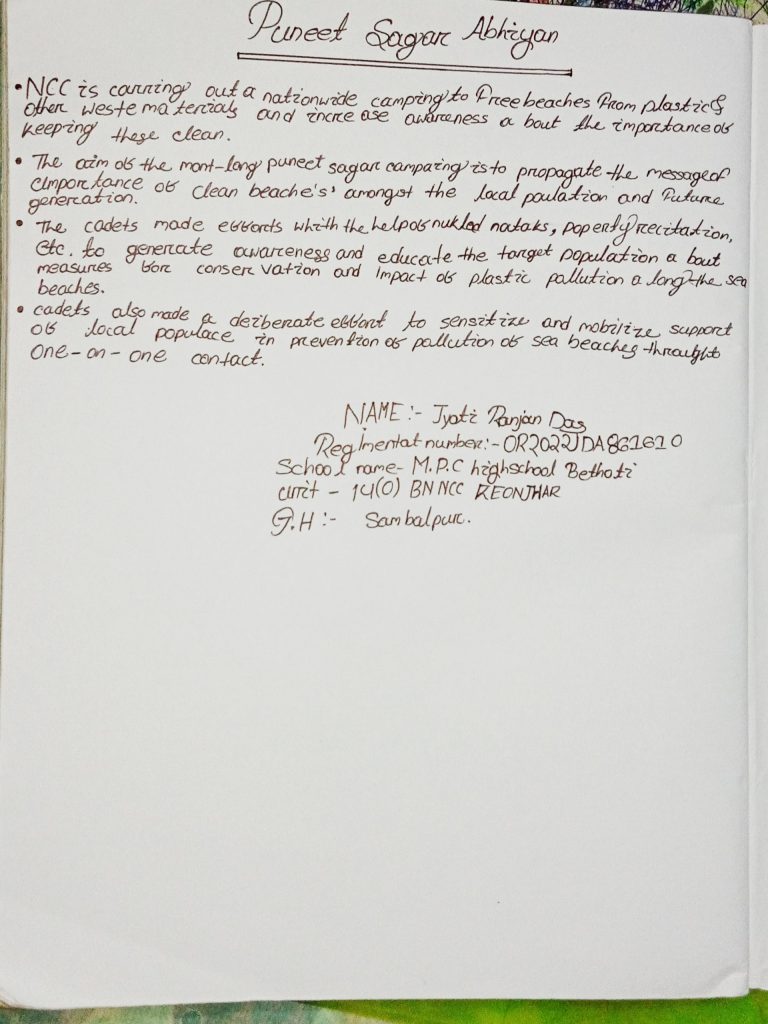 Puneet Sagar Abhiyan
• NCC is carring out a nationwide camping to Free beaches From plastic &
other weste materials and increase awareness a bout the importance of
keeping these clean.
• The aim of the mont-long puneet sagar campaing is to propagate the message of
importance of clean beache's' amongst the local poulation and Future
generation.
• The cadets made efforts whith the help of nukled nataks, poperty recitation,
etc. to generate awareness and educate the target population a bout
measures for conser vation and impact of plastic pollution a long the sea
beaches.
• cadets also made a deziberate effort to sensitize and mobilize support
of local populace in prevention of pollution of sea beaches throught
one-on-one contact.
NAME :- Jyoti Ranjan Das
Regimentat number:- OR2022JDA861610
School name- M.P.C highschool Bethoti
unit - 14(O) BN NCC KEONJHAR
G.H :- Sambalpur.